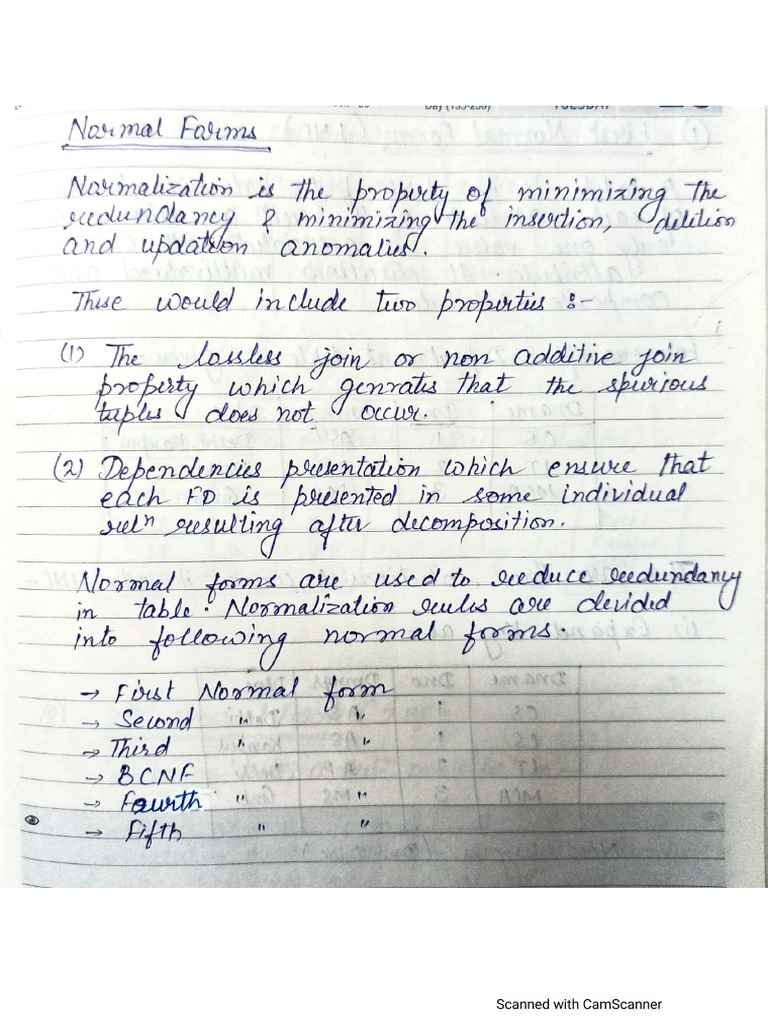 Day (135-230) TUESDAY
Normal Forms
Normalization is the property of minimizing the
redundancy & minimizing the insertion, deletion
and updation anomalies.
These would include two properties :-
(1) The lossless join or non additive join
property which genrates that the spurious
tuples does not occur.
(2) Dependencies presentation which ensure that
each FD is presented in some individual
relⁿ resulting after decomposition.
Normal forms are used to reduce redundancy
in table. Normalization rules are devided
into following normal forms.
→ First Normal form
→ Second " "
→ Third " "
→ BCNF
→ Fourth " "
→ Fifth " "
Scanned with CamScanner